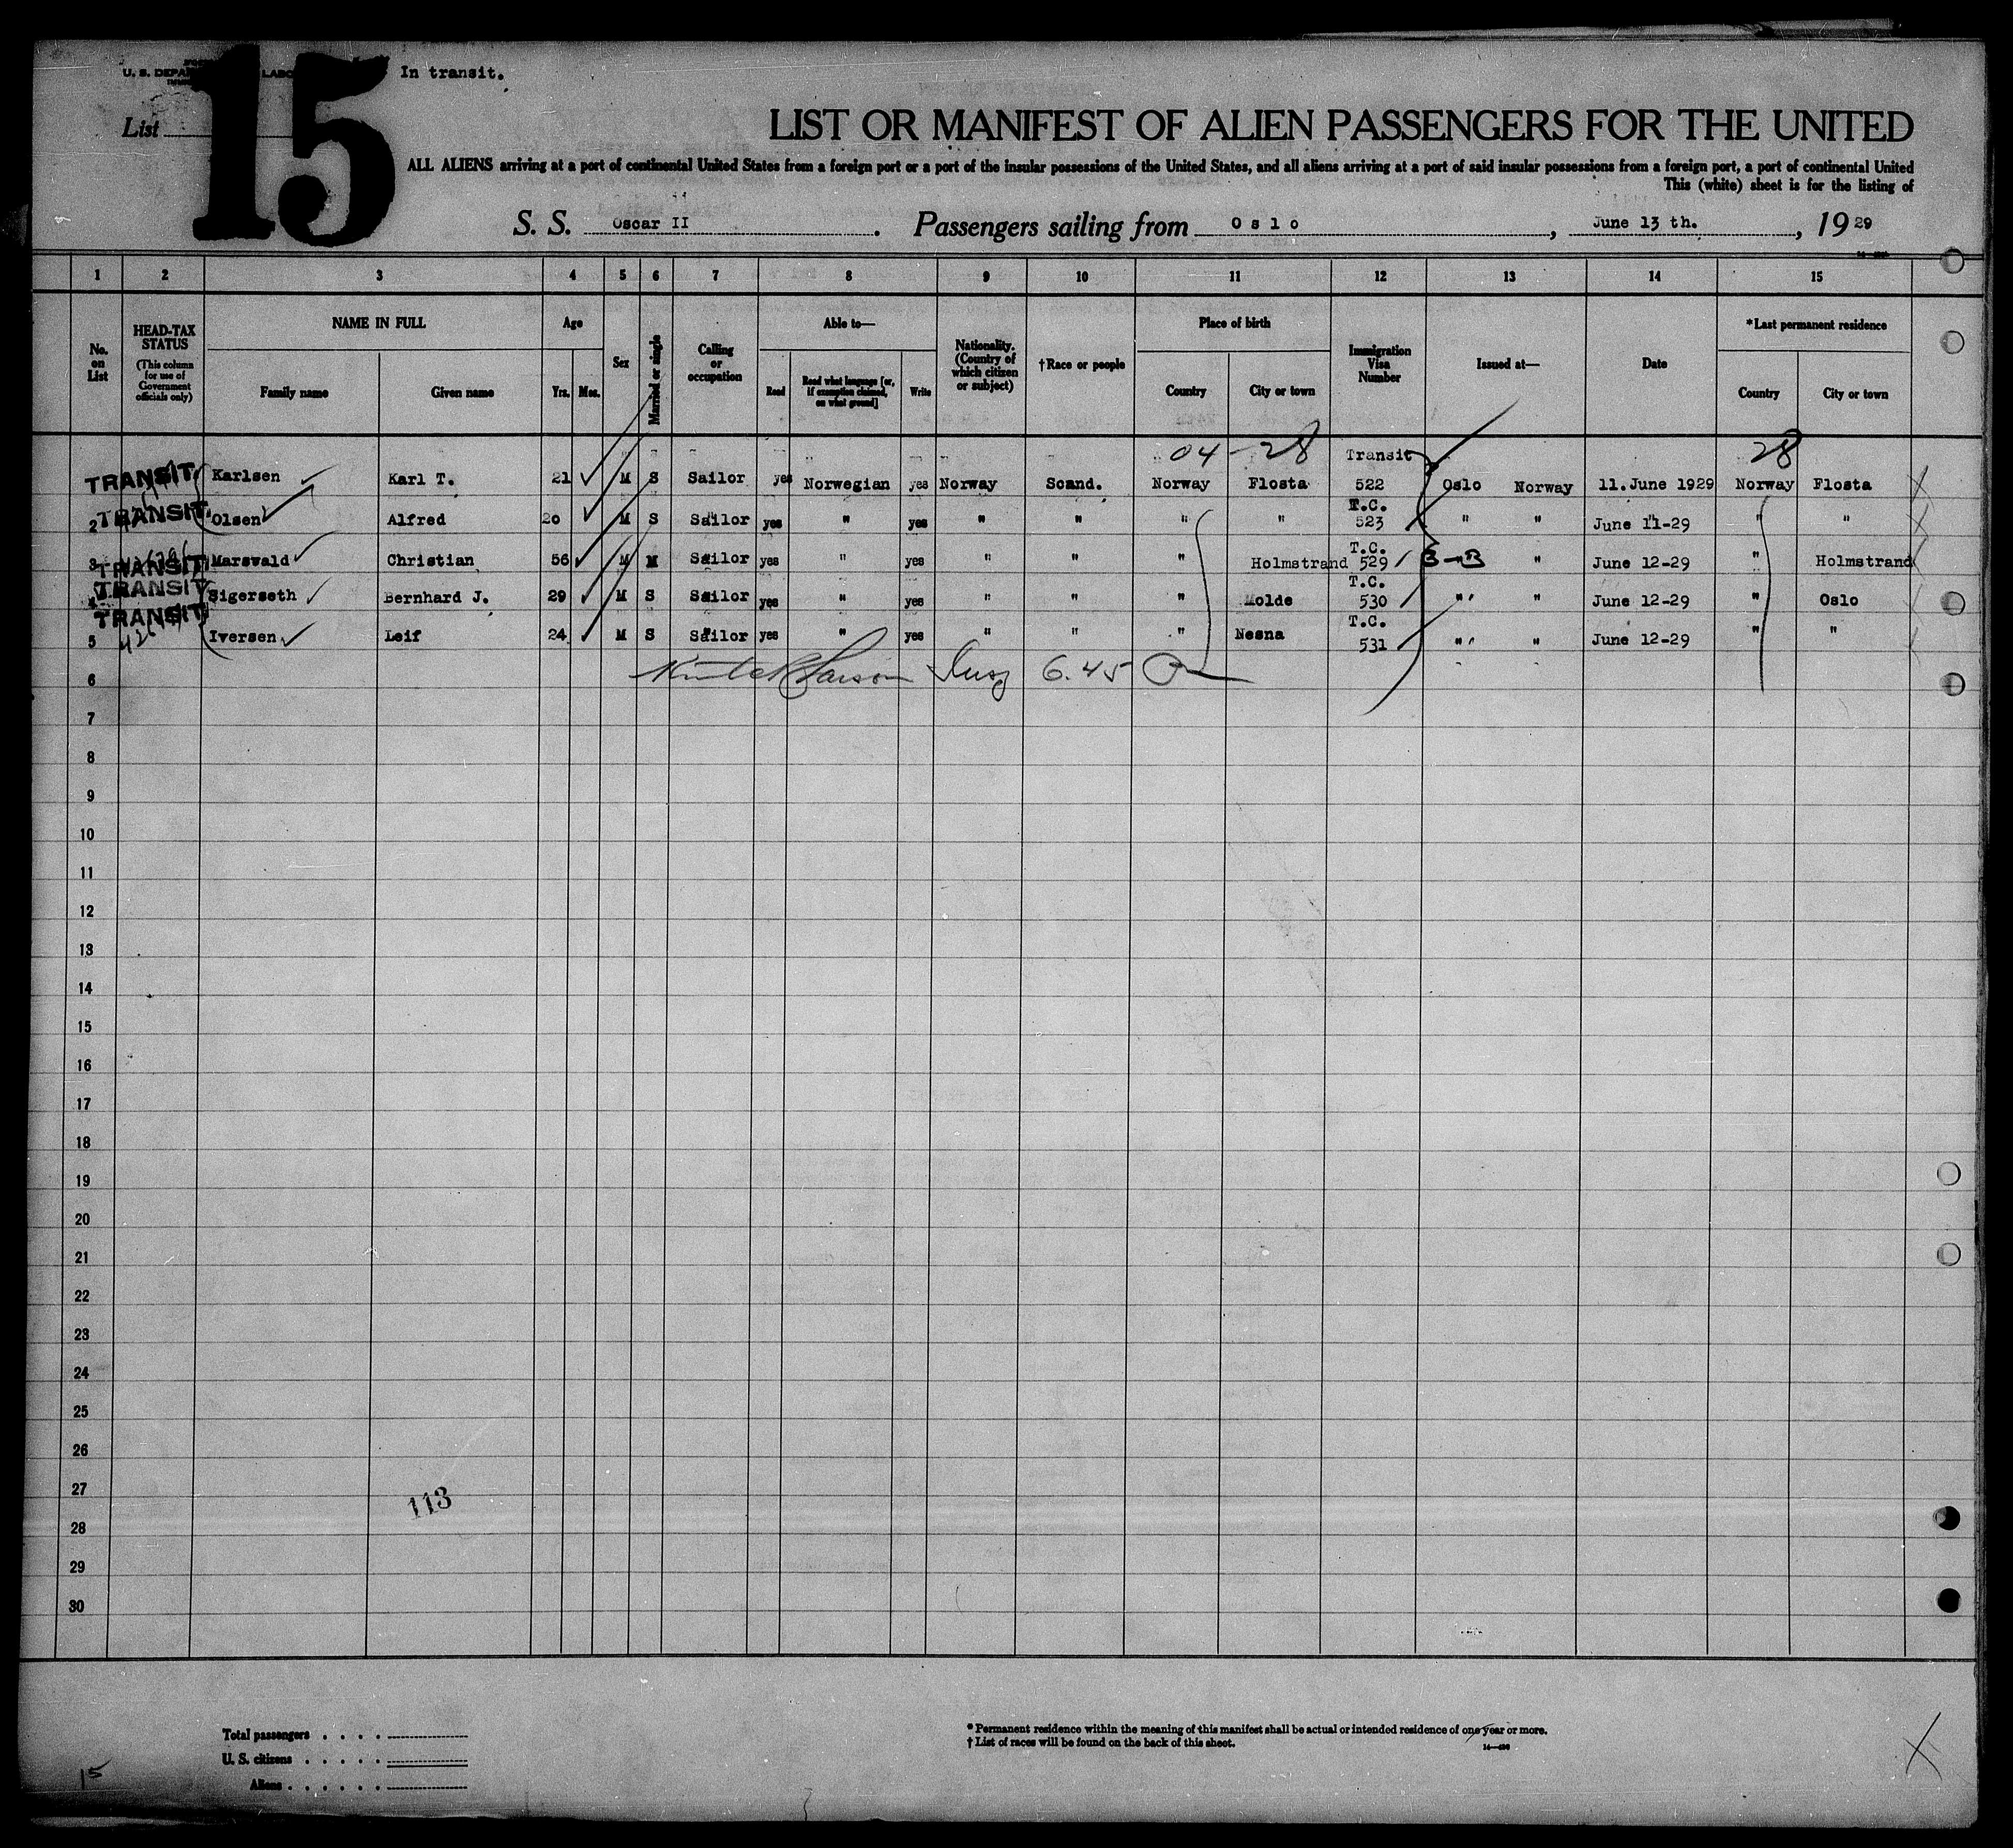 U. S. DEPA LABO In transit.
List 15
LIST OR MANIFEST OF ALIEN PASSENGERS FOR THE UNITED
ALL ALIENS arriving at a port of continental United States from a foreign port or a port of the insular possessions of the United States, and all aliens arriving at a port of said insular possessions from a foreign port, a port of continental United
This (white) sheet is for the listing of
S. S. Oscar II . Passengers sailing from Oslo , June 13 th. , 19 29
1 2 3 4 5 6 7 8 9 10 11 12 13 14 15
No. on List
HEAD-TAX STATUS (This column for use of Government officials only)
NAME IN FULL
Family name Given name
Age
Yrs. Mos.
Sex
Married or single
Calling or occupation
Able to—
Read Read what language [or, if exemption claimed, on what ground] Write
Nationality. (Country of which citizen or subject)
†Race or people
Place of birth
Country City or town
Immigration Visa Number
Issued at—
Date
*Last permanent residence
Country City or town
04 - 28 Transit 28
TRANSIT Karlsen Karl T. 21 M S Sailor yes Norwegian yes Norway Scand. Norway Flosta 522 Oslo Norway 11.June 1929 Norway Flosta
T.C.
2 TRANSIT Olsen Alfred 20 M S Sailor yes " yes " " " " 523 " " June 11-29 " "
T.C.
3 TRANSIT Marsvald Christian 56 M M Sailor yes " yes " " " Holmstrand 529 B-B " June 12-29 " Holmstrand
T.C.
4 TRANSIT Sigerseth Bernhard J. 29 M S Sailor yes " yes " " " Molde 530 " " June 12-29 " Oslo
TRANSIT T.C.
5 Iversen Leif 24 M S Sailor yes " yes " " " Nesna 531 " " June 12-29 " "
6 6.45
7
8
9
10
11
12
13
14
15
16
17
18
19
20
21
22
23
24
25
26
27
113
28
29
30
Total passengers . . . .
U. S. citizens . . . . .
Aliens . . . . . .
* Permanent residence within the meaning of this manifest shall be actual or intended residence of one year or more.
† List of races will be found on the back of this sheet.
15